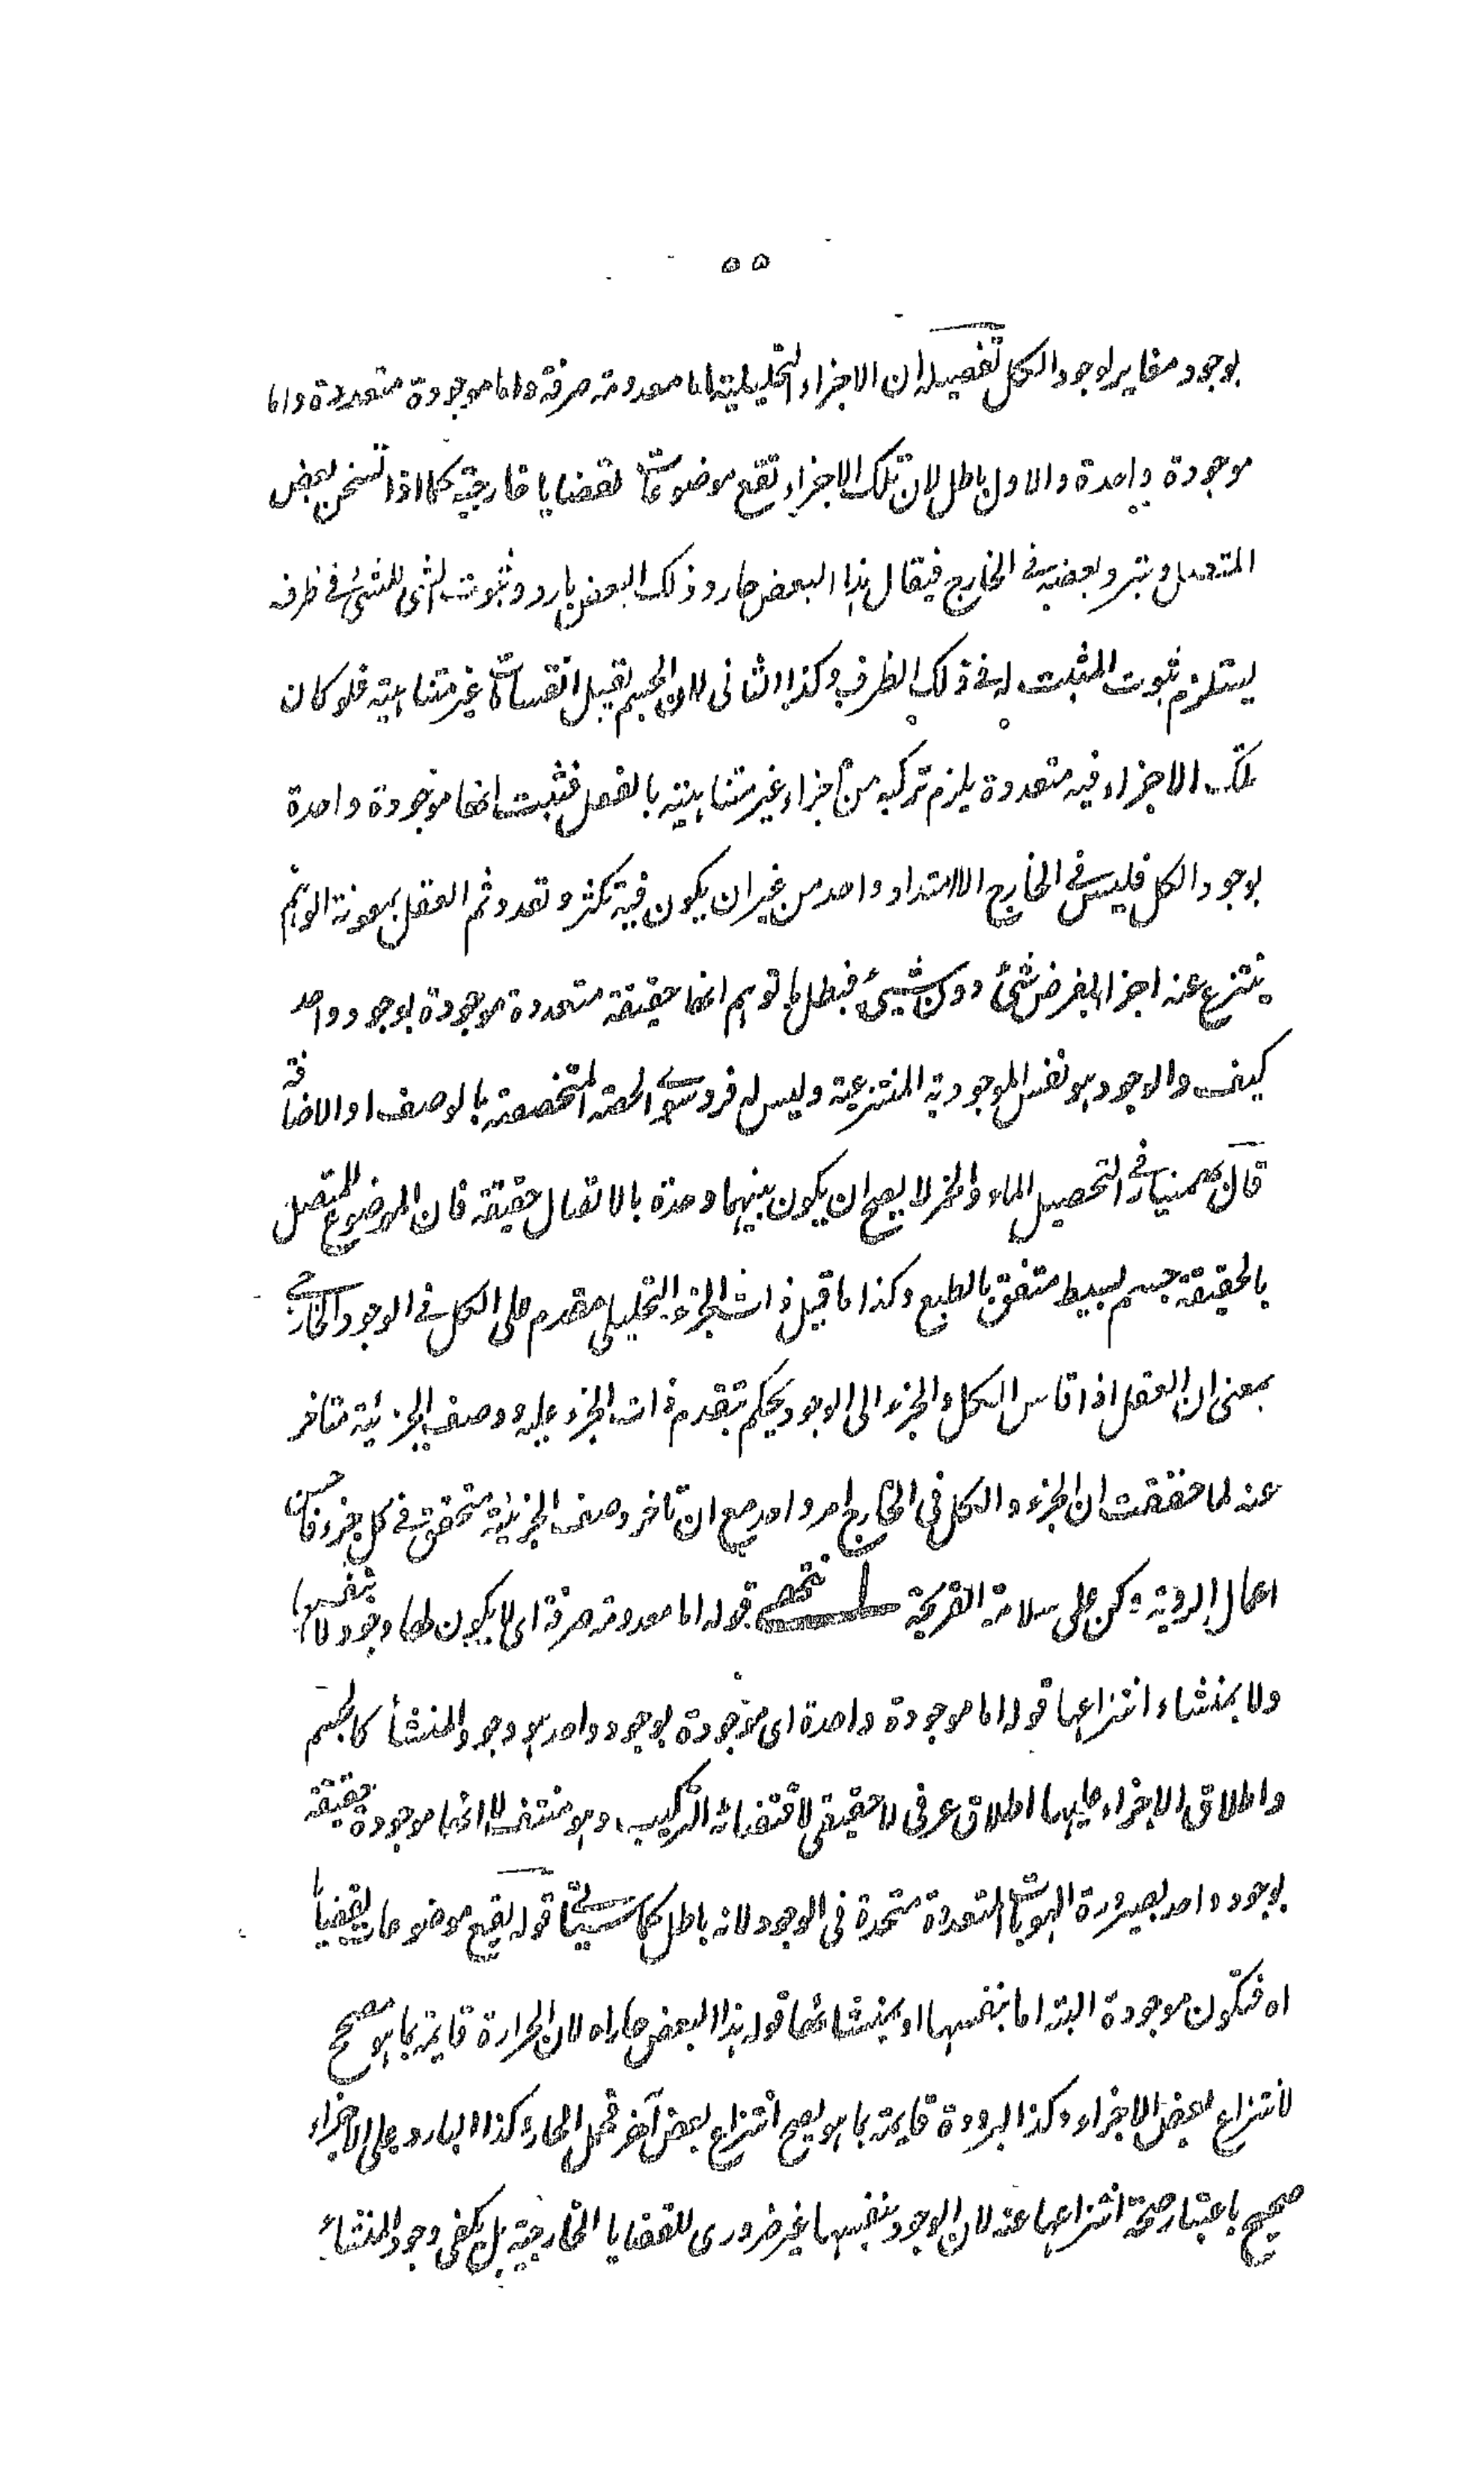 ٥٥
بوجود مغاير لوجود الكل تفصيله ان الاجزاء التحليلية اما معدومة صرفة واما موجودة متعددة واما
موجودة واحدة والاول باطل لان تلك الاجزاء تقع موضوعات لقضايا خارجية كما اذا تسخن بعض
المتصل وتبرد بعضه في الخارج فيقال هذا البعض حار وذلك البعض بارد وثبوت الشئ للشئ في ظرف
يستلزم ثبوت المثبت له في ذلك الظرف وكذا الثانى لان الجسم يقبل انقسامات غير متناهية فلو كان
تلك الاجزاء فيه متعددة يلزم تركبه من اجزاء غير متناهية بالفعل فثبت انها موجودة واحدة
بوجود الكل فليس في الخارج الا امتداد واحد من غير ان يكون فيه تكثر وتعدد ثم العقل بمعونة الوهم
ينتزع عنه اجزاء بفرض شئ دون شيئ فبطل ما توهم انها حقيقة متعددة موجودة بوجود واحد
كيف والوجود هو نفس الموجودية المنتزعية وليس له فرد سوى الحصة المتخصصة بالوصف او الاضافة
قال بهمنيار في التحصيل الماء والخمر لا يصح ان يكون بينهما وحدة بالاتصال حقيقة فان الموضوع للمتصل
بالحقيقة جسم بسيط متفق بالطبع وكذا ما قيل ذات الجزء التحليلى مقدم على الكل في الوجود الخارجى
بمعنى ان العقل اذا قاس الكل والجزء الى الوجود يحكم تقدم ذات الجزء عليه ووصف الجزئية متاخر
عنه لما حققت ان الجزء والكل في الخارج امر واحد مع ان تاخر وصف الجزئية متحقق في كل جزء فاحسن
اعمال الروية وكن على سلامة القريحة قوله اما معدومة صرفة اى لا يكون لها وجود لا بنفسها
ولا بمنشاء انتزاعها قوله اما موجودة واحدة اى موجودة بوجود واحد هو وجود المنشأ كالجسم
واطلاق الاجزاء عليها اطلاق عرفى لا حقيقى لاقتضائه التركيب وهو منتف لا انها موجودة حقيقة
بوجود واحد بصيرورة الهويات المتعددة متحدة في الوجود لانه باطل كما سيأتى قوله يقع موضوعات لقضايا
اه فتكون موجودة البتة اما بنفسها او بمنشائها قوله هذا البعض حار اه لان الحرارة قايمة بما هو مصحح
لانتزاع بعض الاجزاء وكذا البرودة قايمة بما هو يصح انتزاع بعض آخر فحمل الحار وكذا البارد على الاجزاء
صحيح باعتبار صحة انتزاعها عنه لان الوجود بنفسها غير ضرورى للقضايا الخارجية بل يكفى وجود المنشاء